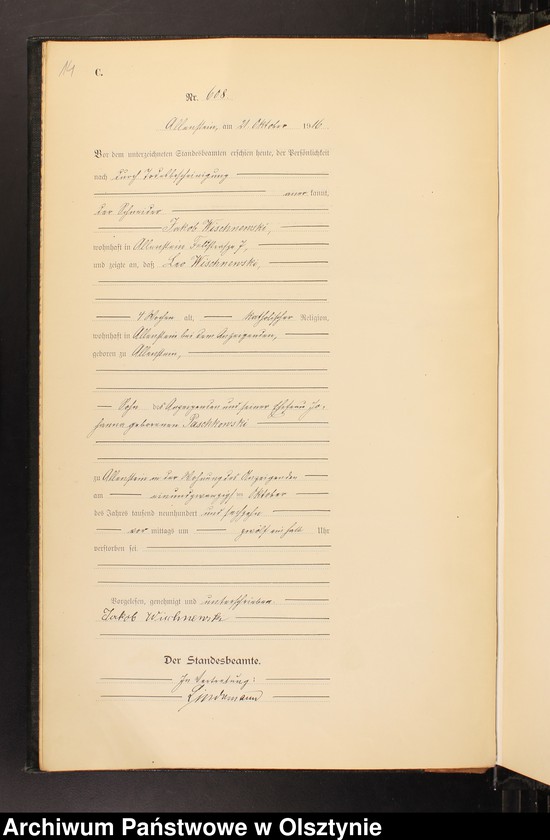 14
C.
Nr. 608
Allenstein, am 21 Oktober 1916
Vor dem unterzeichneten Standesbeamten erschien heute, der Persönlichkeit
nach durch
aner kannt,
der Schneider
Jakob Wischnewski,
wohnhaft in Allenstein 7,
und zeigte an, daß Leo Wischnewski,
Wochen alt, katholischer Religion,
wohnhaft in Allenstein bei dem Anzeigenden,
geboren zu Allenstein,
Sohn des Anzeigenden und seiner Ehefrau Jo-
hanna geborenen Paschkowski
zu Allenstein in der Wohnung des Anzeigenden
am einundzwanzigsten Oktober
des Jahres tausend neunhundert und sechzehn
vor mittags um Uhr
verstorben sei
Vorgelesen, genehmigt und unterschrieben
Jakob Wischnewski
Der Standesbeamte.
In Vertretung:
Lindemann
Archiwum Państwowe w Olsztynie